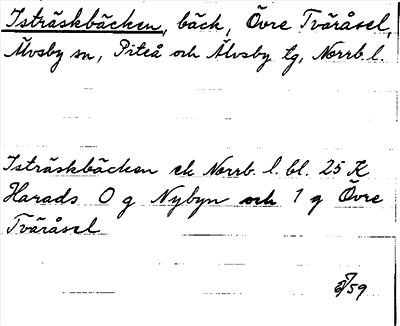 Isträskbäcken, bäck, Övre Tväråsel,
Älvsby sn, Piteå och Älvsby tg, Norrb. l.
Isträskbäcken ek Norrb. l. bl. 25 K
Harads 0 g Nybyn och 1 g Övre
Tväråsel
/59